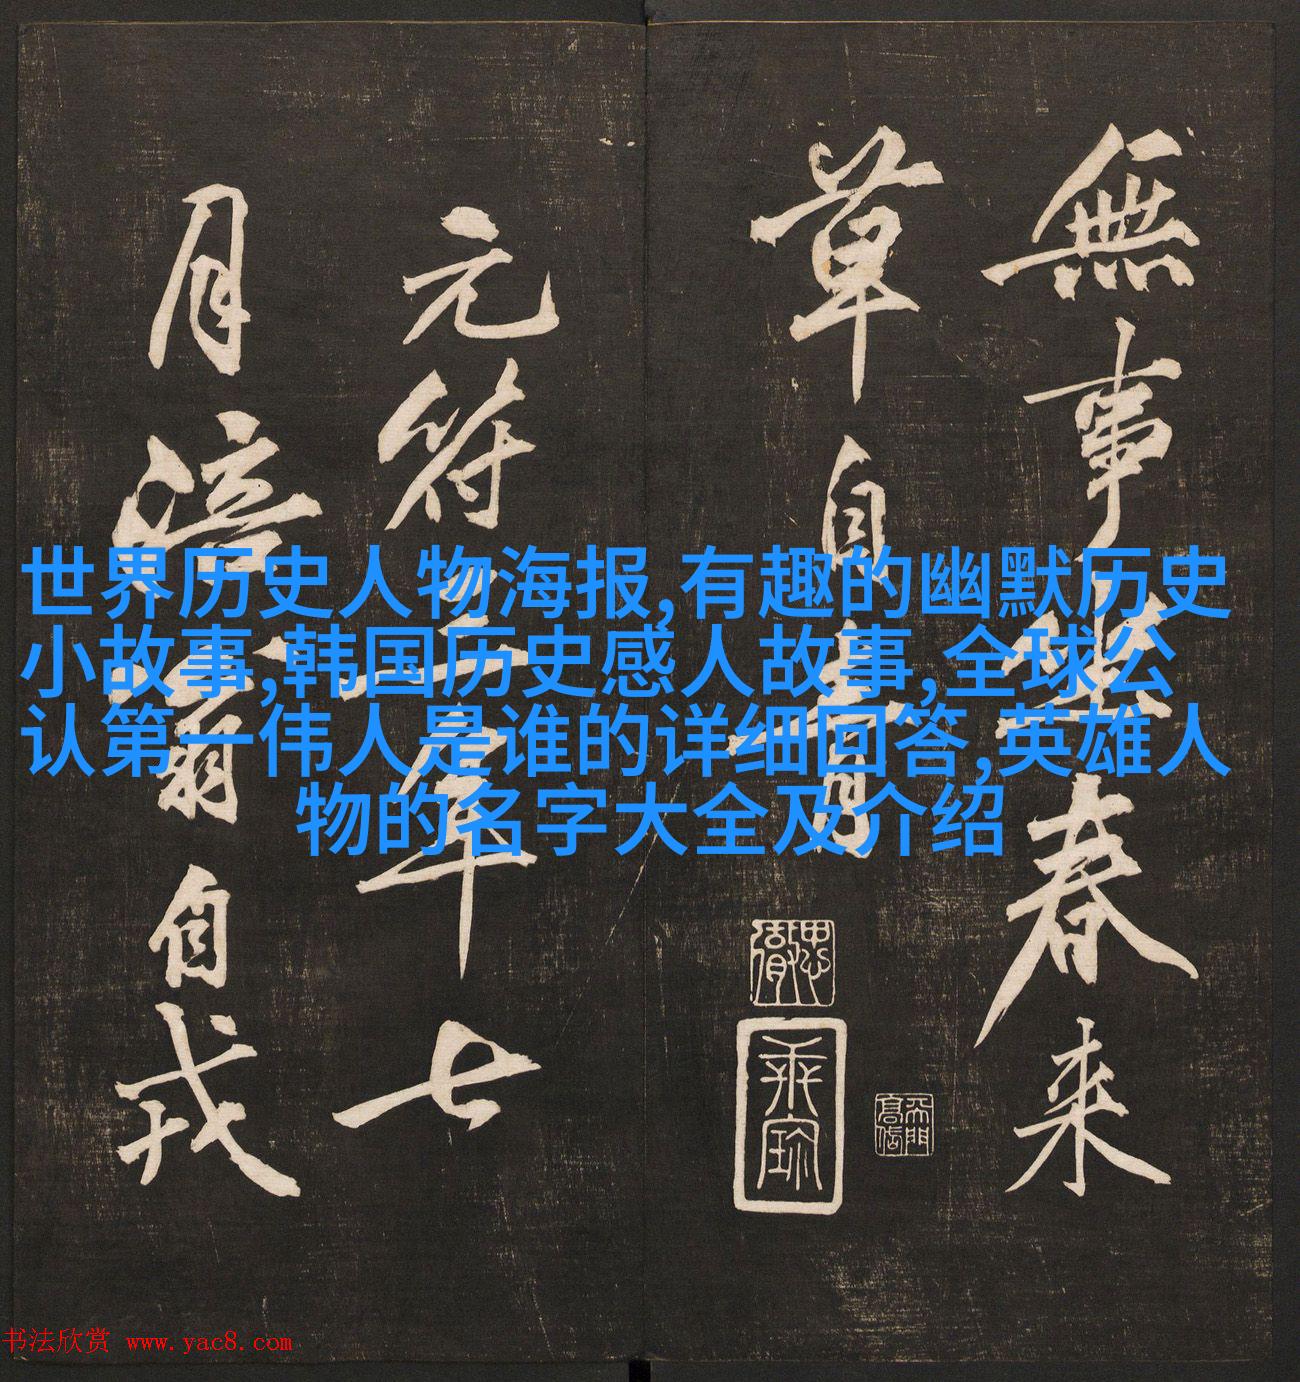 無事坐春来
草自青
元符三年七
月涪翁自戎
世界历史人物海报,有趣的幽默历史
小故事,韩国历史感人故事,全球公
认第一伟人是谁的详细回答,英雄人
物的名字大全及介绍
书法欣赏 www.yac8.com